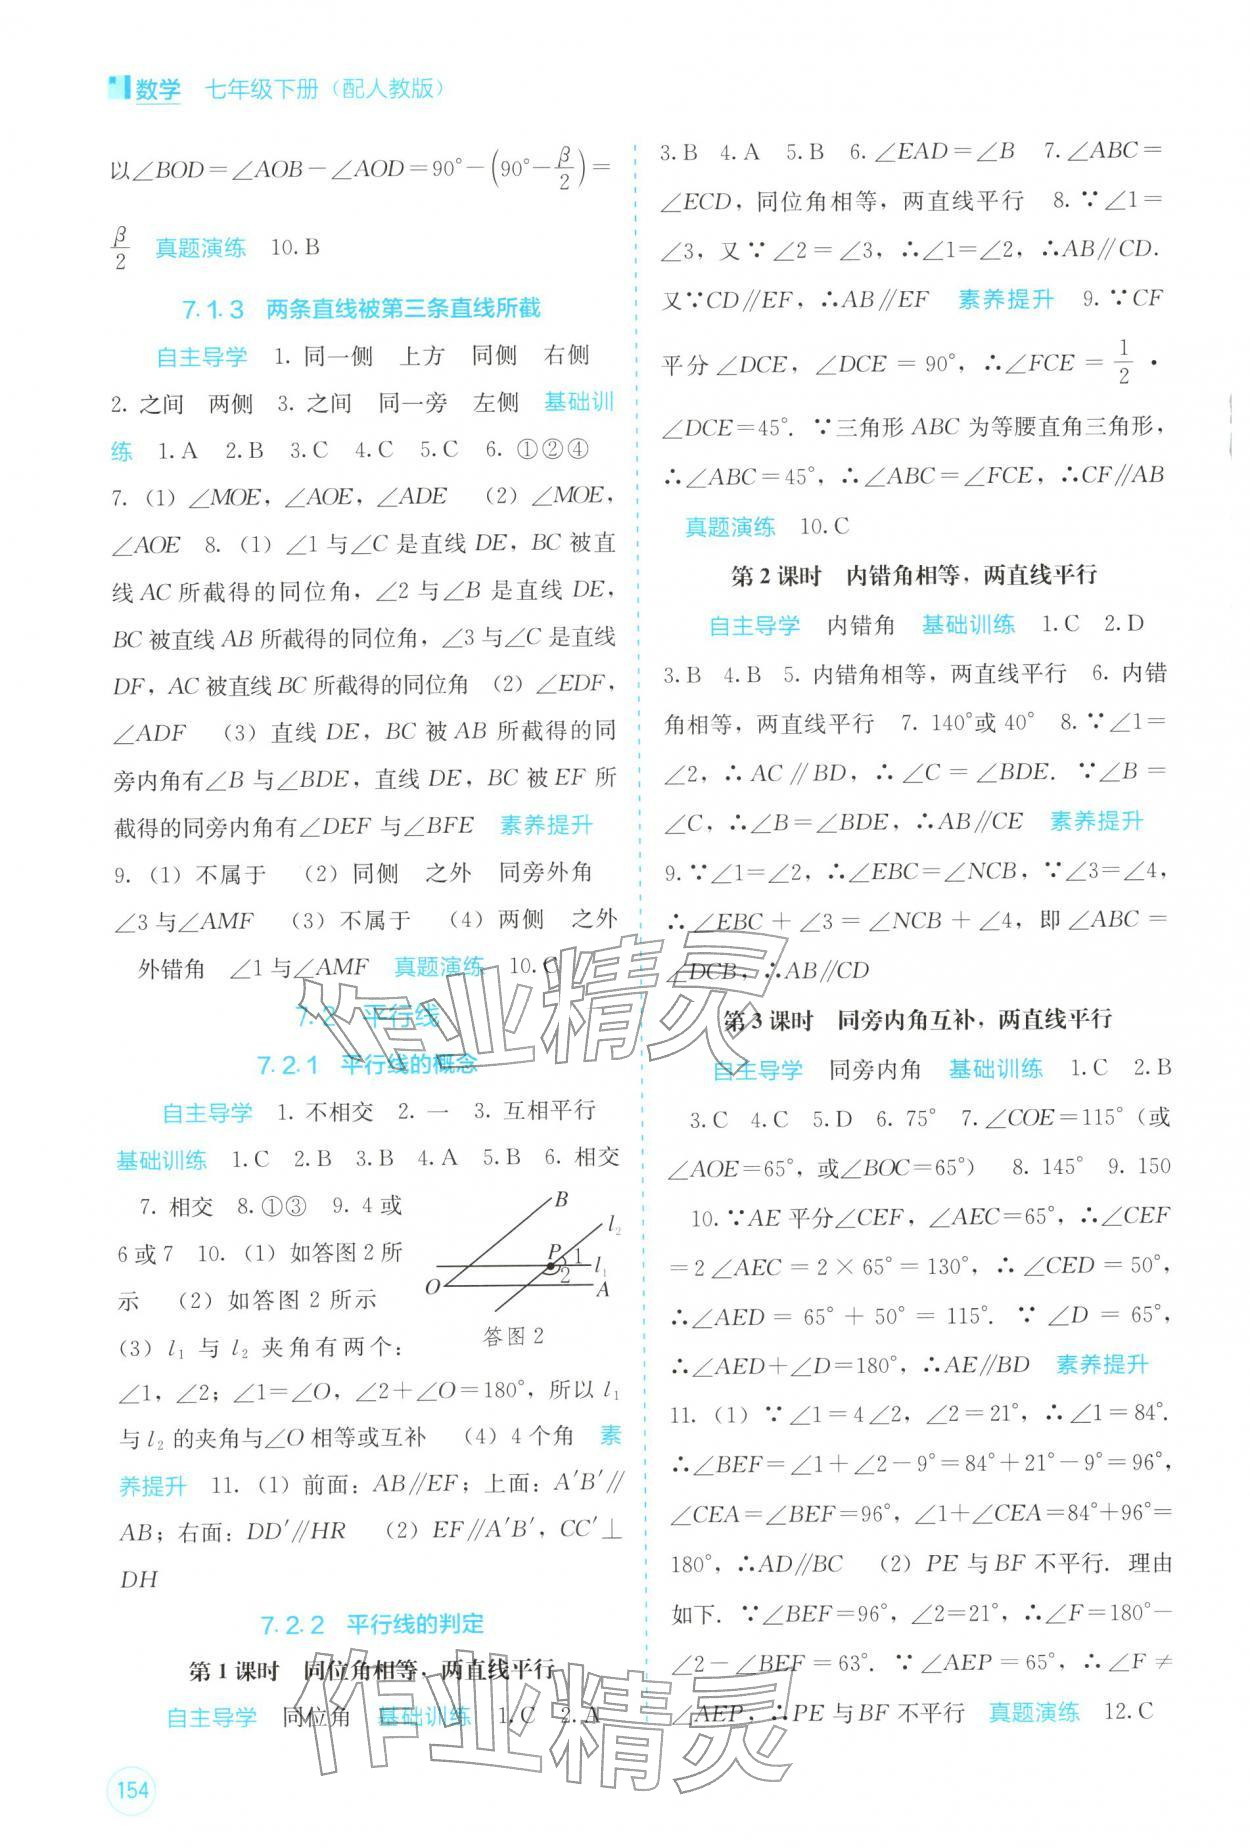 数学 七年级下册（配人教版）
以∠BOD＝∠AOB－∠AOD＝90°－(90°－β/2)＝
β/2 真题演练 10. B
7.1.3 两条直线被第三条直线所截
自主导学 1. 同一侧 上方 同侧 右侧
2. 之间 两侧 3. 之间 同一旁 左侧 基础训
练 1. A 2. B 3. C 4. C 5. C 6. ①②④
7.（1）∠MOE，∠AOE，∠ADE （2）∠MOE，
∠AOE 8.（1）∠1与∠C是直线DE，BC被直
线AC所截得的同位角，∠2与∠B是直线DE，
BC被直线AB所截得的同位角，∠3与∠C是直线
DF，AC被直线BC所截得的同位角 （2）∠EDF，
∠ADF （3）直线DE，BC被AB所截得的同
旁内角有∠B与∠BDE，直线DE，BC被EF所
截得的同旁内角有∠DEF与∠BFE 素养提升
9.（1）不属于 （2）同侧 之外 同旁外角
∠3与∠AMF （3）不属于 （4）两侧 之外
外错角 ∠1与∠AMF 真题演练 10. C
7.2 平行线
7.2.1 平行线的概念
自主导学 1. 不相交 2. 一 3. 互相平行
基础训练 1. C 2. B 3. B 4. A 5. B 6. 相交
7. 相交 8. ①③ 9. 4或
6或7 10.（1）如答图2所
示 （2）如答图2所示
（3）l₁与l₂夹角有两个：
B
l₂
P
1
2
l₁
O
A
答图2
∠1，∠2；∠1＝∠O，∠2＋∠O＝180°，所以l₁
与l₂的夹角与∠O相等或互补 （4）4个角 素
养提升 11.（1）前面：AB∥EF；上面：A′B′∥
AB；右面：DD′∥HR （2）EF∥A′B′，CC′⊥
DH
7.2.2 平行线的判定
第1课时 同位角相等，两直线平行
自主导学 同位角 基础训练 1. C 2. A
154
3. B 4. A 5. B 6. ∠EAD＝∠B 7. ∠ABC＝
∠ECD，同位角相等，两直线平行 8. ∵∠1＝
∠3，又∵∠2＝∠3，∴∠1＝∠2，∴AB∥CD.
又∵CD∥EF，∴AB∥EF 素养提升 9. ∵CF
平分∠DCE，∠DCE＝90°，∴∠FCE＝1/2·
∠DCE＝45°. ∵三角形ABC为等腰直角三角形，
∴∠ABC＝45°，∴∠ABC＝∠FCE，∴CF∥AB
真题演练 10. C
第2课时 内错角相等，两直线平行
自主导学 内错角 基础训练 1. C 2. D
3. B 4. B 5. 内错角相等，两直线平行 6. 内错
角相等，两直线平行 7. 140°或40° 8. ∵∠1＝
∠2，∴AC∥BD，∴∠C＝∠BDE. ∵∠B＝
∠C，∴∠B＝∠BDE，∴AB∥CE 素养提升
9. ∵∠1＝∠2，∴∠EBC＝∠NCB，∵∠3＝∠4，
∴∠EBC＋∠3＝∠NCB＋∠4，即∠ABC＝
∠DCB，∴AB∥CD
第3课时 同旁内角互补，两直线平行
自主导学 同旁内角 基础训练 1. C 2. B
3. C 4. C 5. D 6. 75° 7. ∠COE＝115°（或
∠AOE＝65°，或∠BOC＝65°） 8. 145° 9. 150
10. ∵AE平分∠CEF，∠AEC＝65°，∴∠CEF
＝2∠AEC＝2×65°＝130°，∴∠CED＝50°，
∴∠AED＝65°＋50°＝115°. ∵∠D＝65°，
∴∠AED＋∠D＝180°，∴AE∥BD 素养提升
11.（1）∵∠1＝4∠2，∠2＝21°，∴∠1＝84°.
∴∠BEF＝∠1＋∠2－9°＝84°＋21°－9°＝96°，
∠CEA＝∠BEF＝96°，∠1＋∠CEA＝84°＋96°＝
180°，∴AD∥BC （2）PE与BF不平行. 理由
如下. ∵∠BEF＝96°，∠2＝21°，∴∠F＝180°－
∠2－∠BEF＝63°. ∵∠AEP＝65°，∴∠F≠
∠AEP，∴PE与BF不平行 真题演练 12. C
作业精灵
作业精灵